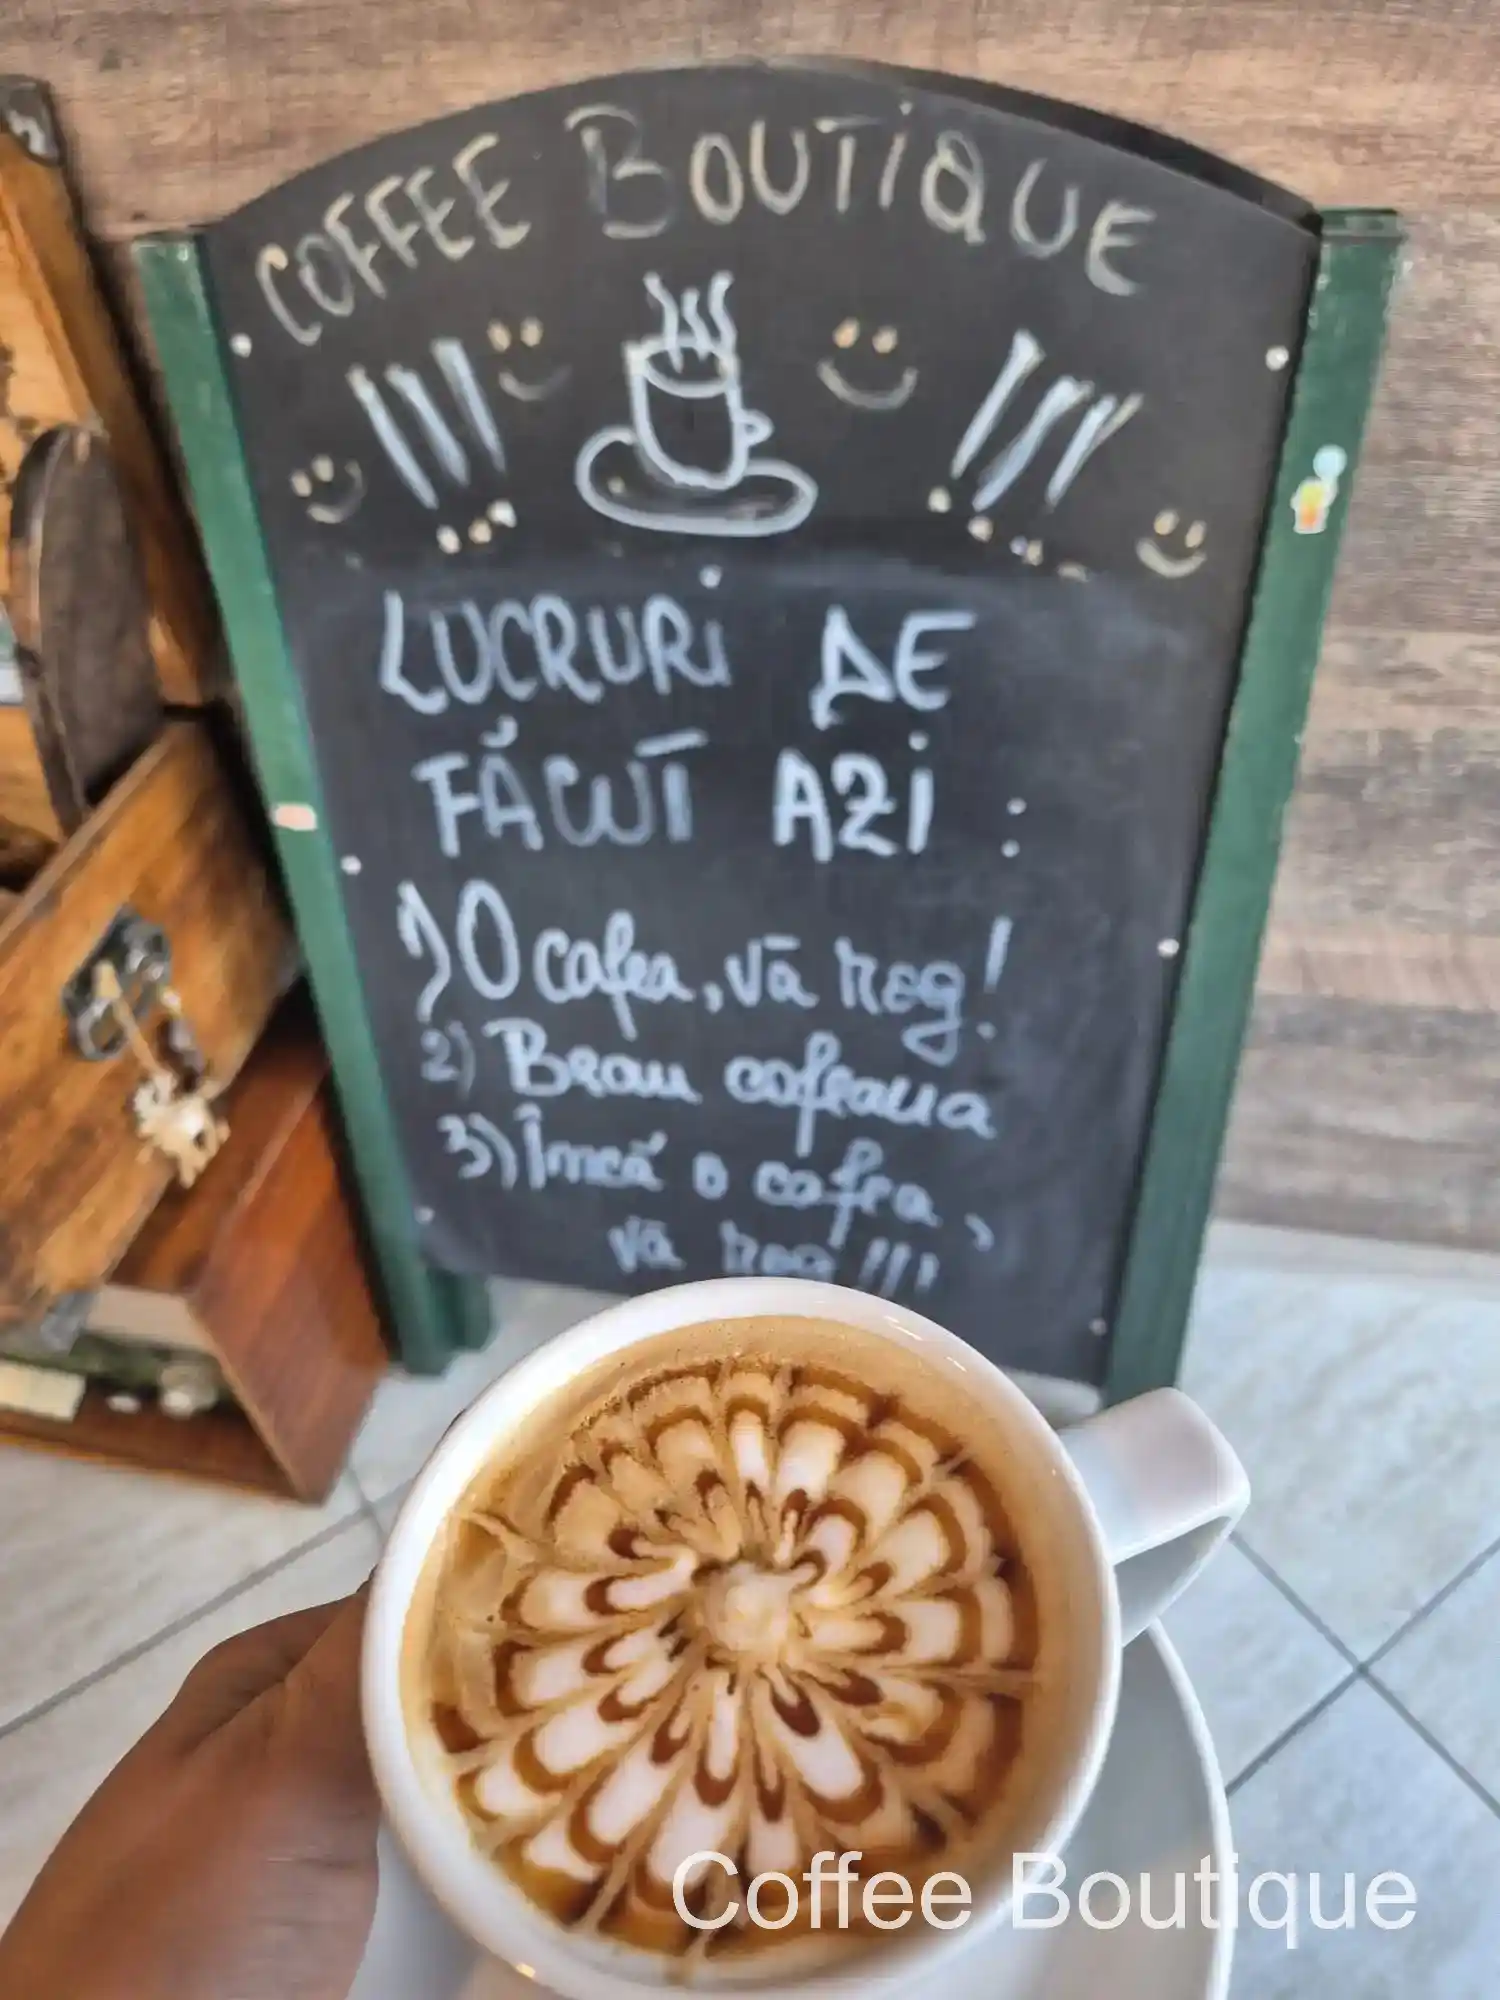 COFFEE BOUTIQUE
!!! !!!
LUCRURI DE
FĂCUT AZI :
1) O cafea, vă rog!
2) Beau cafeaua
3) Încă o cafea,
vă rog !!!
Coffee Boutique